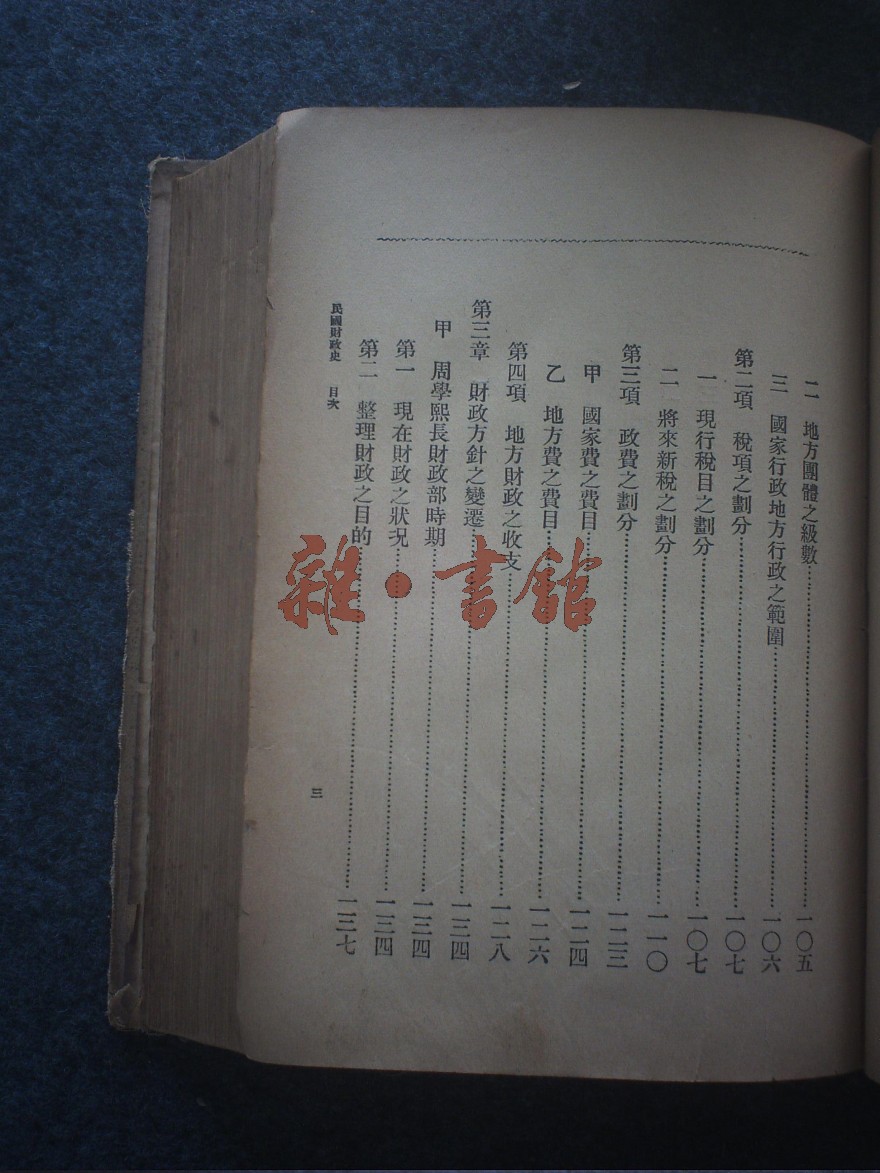 二 地方團體之級數……一〇五
三 國家行政地方行政之範圍……一〇六
第二項 稅項之劃分……一〇七
一 現行稅目之劃分……一〇七
二 將來新稅之劃分……一一〇
第三項 政費之劃分……一二三
甲 國家費之費目……一二四
乙 地方費之費目……一二六
第四項 地方財政之收支……一二八
第三章 財政方針之變遷……一三四
甲 周學熙長財政部時期……一三四
第一 現在財政之狀況……一三四
第二 整理財政之目的……一三七
民國財政史 目次
三
雜·書館